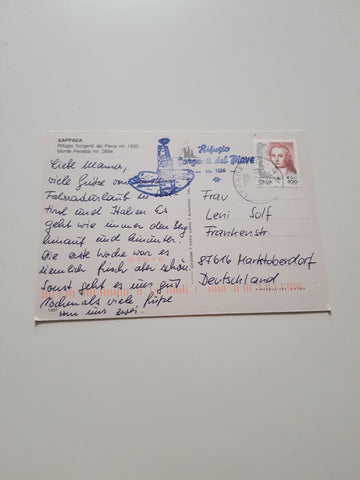 SAPPADA
Rifugio Sorgenti del Piave mt. 1830
Monte Peralba mt. 2694
Liebe Mama,
viele Grüße vom
Fahrradurlaub in
tirol und Italien. Es
geht wie immer den Berg
hinauf und hinunter.
Die erste Woche war es
ziemlich frisch aber schön.
Sonst geht es uns gut.
Nochmals viele Grüße
von uns zwei.
Rifugio
Sorgenti del Piave
ITALIA
800
Frau
Leni Solf
Frankenstr.
87616 Marktoberdorf
Deutschland